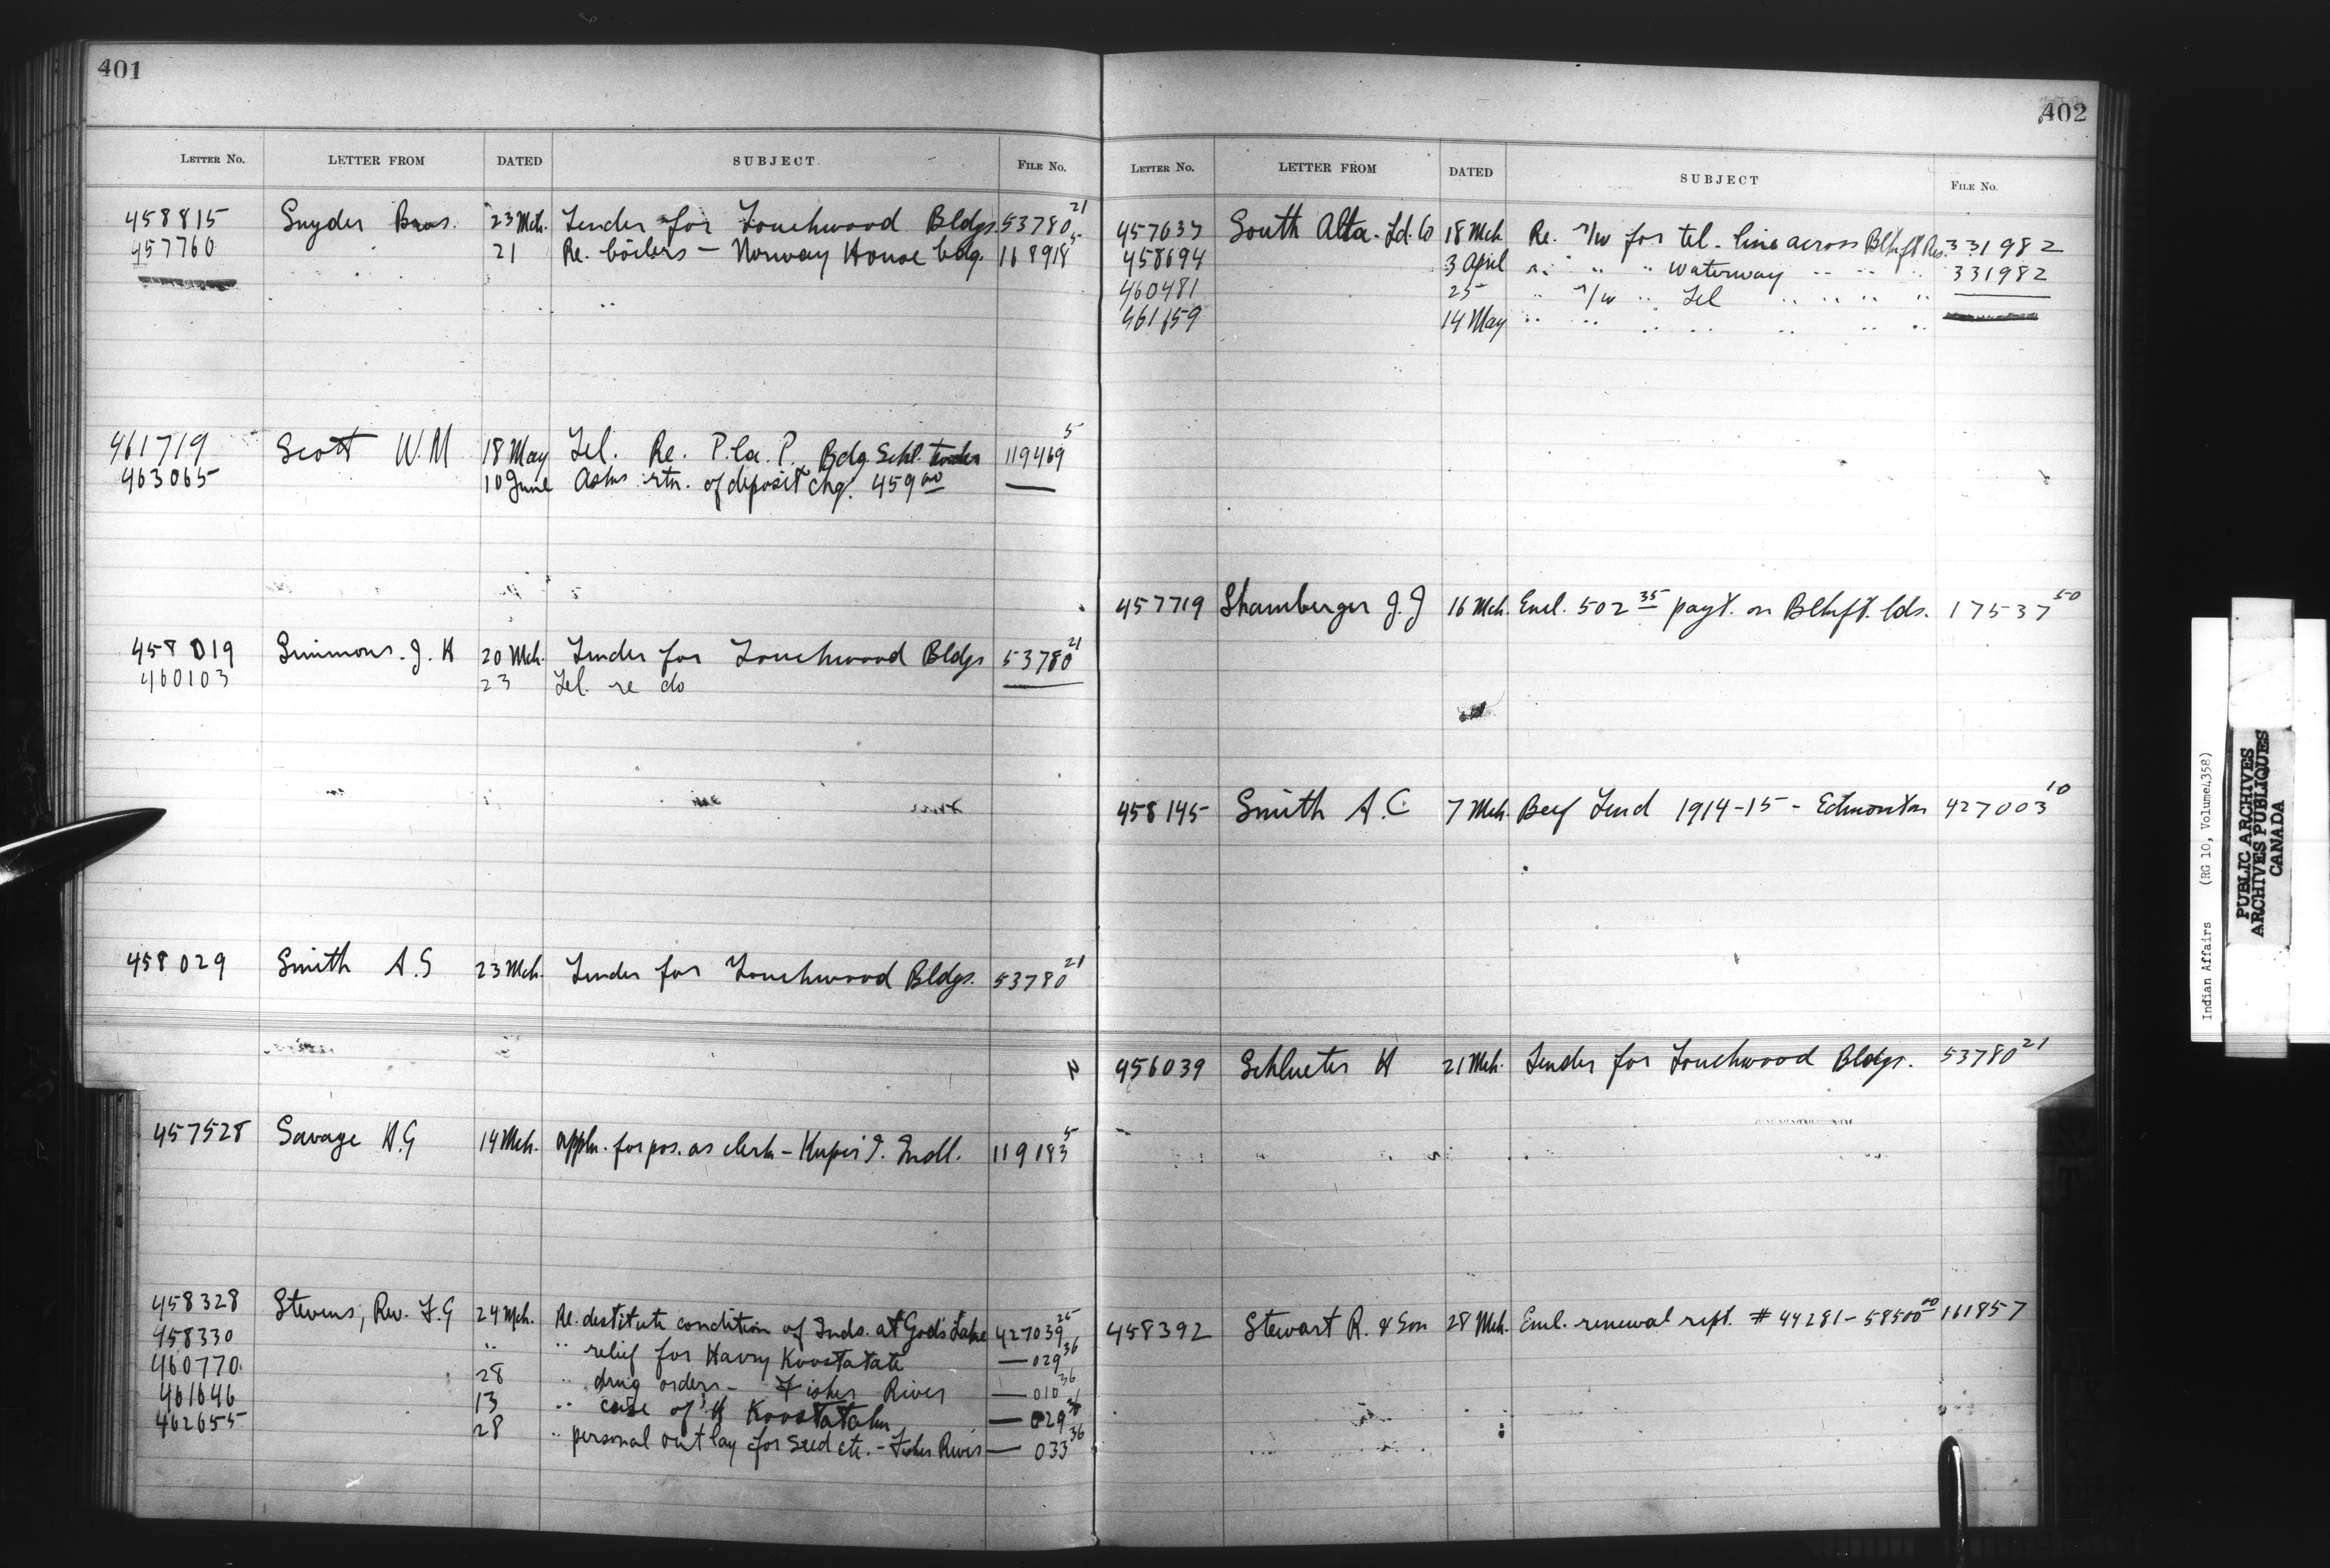 401
LETTER No. LETTER FROM DATED SUBJECT FILE No.
458815 Snyder Bros. 23 Mch. Tender for Touchwood Bldgs. 53780 21
457760 21 Re. boilers - Norway House bldg. 168918 5
461719 Scott W. M 18 May Tel. Re. P. la. P. Bdg. Schl. tender 119469 5
463065 10 June Asks rtn. of deposit chq. 459 00 —
458019 Simmons. J. H 20 Mch. Tender for Touchwood Bldgs 53780 21
460103 23 Tel. re do —
458029 Smith A. S 23 Mch. Tender for Touchwood Bldgs. 53780 21
457528 Savage H. G 14 Mch. Appln. for pos. as clerk - Kuper I. Indl. 119183 5
458328 Stevens, Rev. F. G 24 Mch. Re. destitute condition of Inds. at God's Lake 427039 25
458330 " " relief for Harry Koostatate — 029 36
460770 28 " drug orders - Fisher River — 010 36
461646 13 " case of H Koostatahn — 029 36
462655 28 " personal outlay for seed etc. - Fisher River — 033 36
402
LETTER No. LETTER FROM DATED SUBJECT FILE No.
457637 South Alta. Ld. Co 18 Mch. Re. r/w for tel. line across Blkft Res. 331982
458694 3 April " " " waterway " " " 331982
460481 25 " r/w " Tel " " " " —
461659 14 May " " " " " " "
457719 Shamberger J. J 16 Mch. Encl. 502 35 payt. on Blkft. lds. 17537 50
458145 Smith A. C. 7 Mch. Beef Tend 1914-15 - Edmonton 427003 10
456039 Schlueter H 21 Mch. Tender for Touchwood Bldgs. 53780 21
458392 Stewart R. & Son 28 Mch. Encl. renewal rept. # 44281 - 58500 00 161857
Indian Affairs (RG 10, Volume 4358)
PUBLIC ARCHIVES
ARCHIVES PUBLIQUES
CANADA